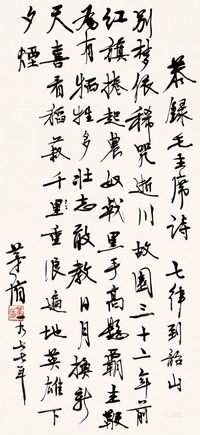 恭録毛主席詩 七律到韶山
别梦依稀咒逝川故園三十二年前
红旗捲起農奴戟黑手高懸覇主鞭
為有牺牲多壮志敢教日月换新
天喜看稻菽千里重浪遍地英雄下
夕煙
茅盾
一九七七年